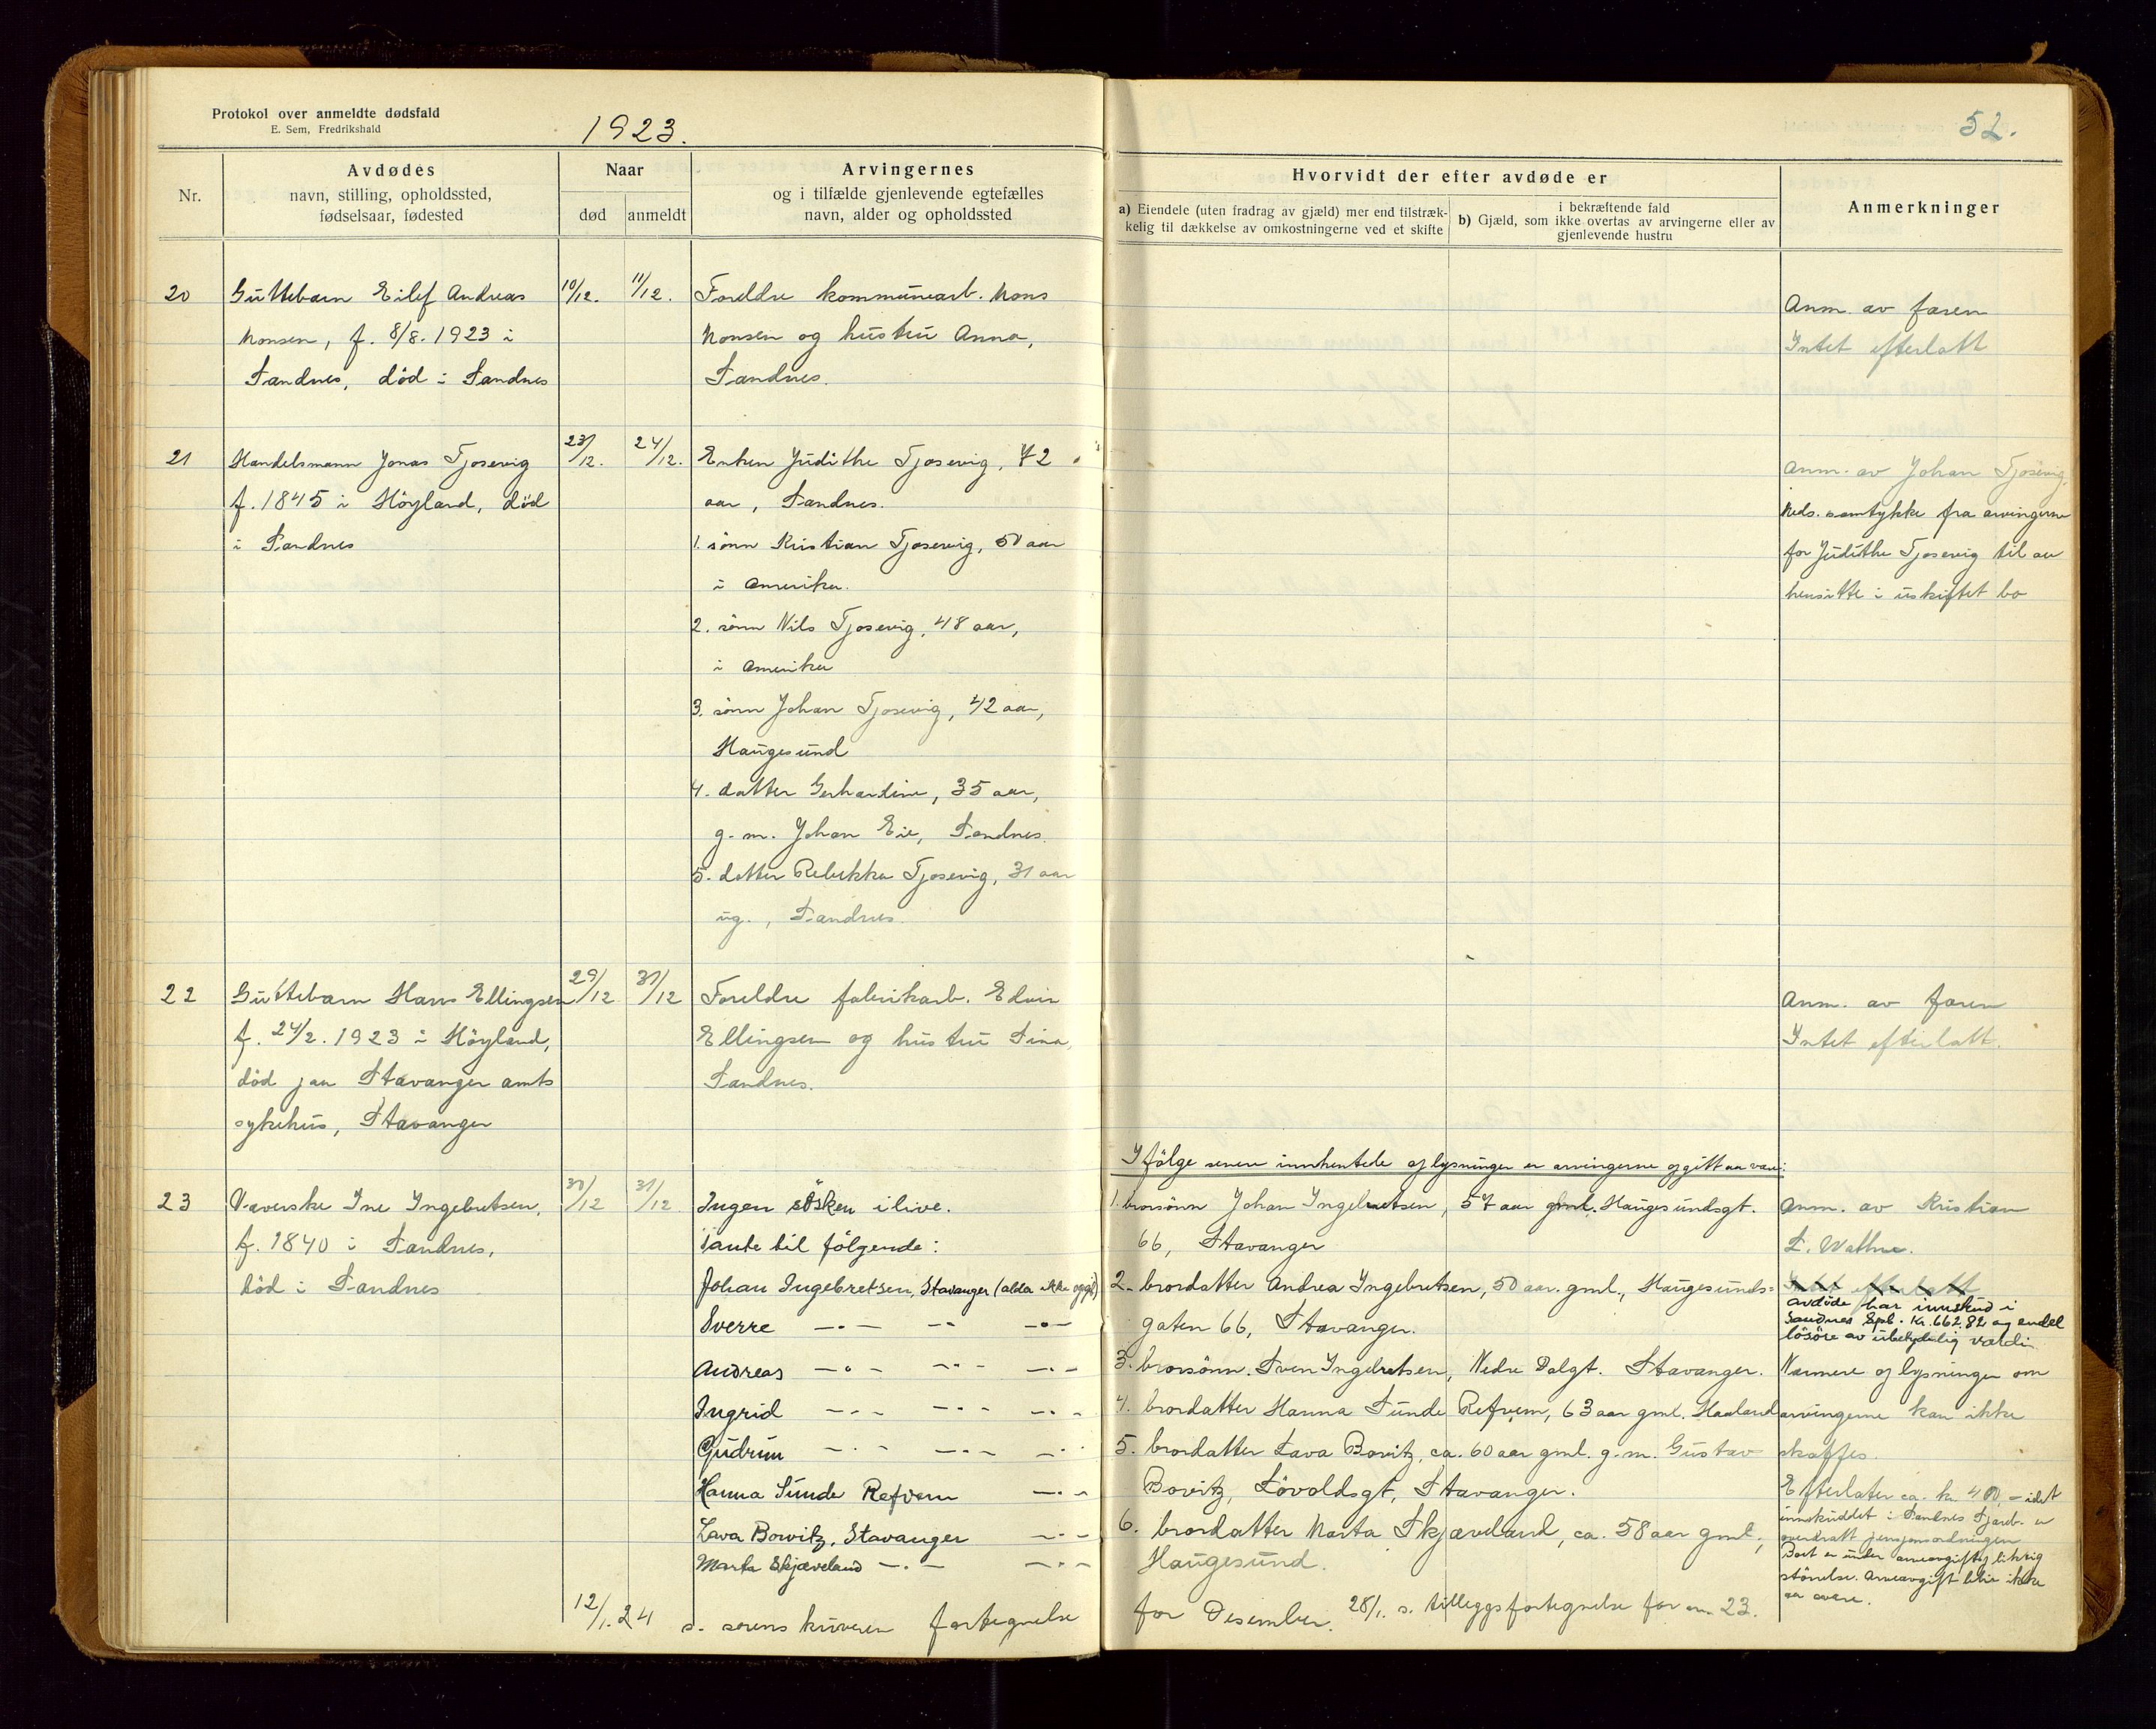 Protokol over anmeldte dødsfald
E. Sem, Fredrikshald
1923.
52.
Nr.
Avdødes
navn, stilling, opholdssted,
fødselsaar, fødested
Naar
død
anmeldt
Arvingernes
og i tilfælde gjenlevende egtefælles
navn, alder og opholdssted
Hvorvidt der efter avdøde er
a) Eiendele (uten fradrag av gjæld) mer end tilstræk-
kelig til dækkelse av omkostningerne ved et skifte
i bekræftende fald
b) Gjæld, som ikke overtas av arvingerne eller av
gjenlevende hustru
Anmerkninger
20
Guttebarn Eilef Andreas
Monsen, f. 8/8. 1923 i
Sandnes, död i Sandnes
10/12.
11/12.
Foreldre kommunearb. Mons
Monsen og hustru Anna,
Sandnes.
Anm. av faren
Intet efterlatt
21
Handelsmann Jonas Tjosevig
f. 1845 i Höyland, död
i Sandnes
23/12.
24/12.
Enken Judithe Tjosevig, 72
aar, Sandnes.
1. sönn Kristian Tjosevig, 50 aar
i Amerika.
2. sönn Nils Tjosevig, 48 aar,
i Amerika
3. sönn Johan Tjosevig, 42 aar,
Haugesund
4. datter Gerhardine, 35 aar,
g. m. Johan Eie, Sandnes.
5. datter Rebekka Tjosevig, 31 aar
ug., Sandnes.
Anm. av Johan Tjosevig,
Meds. samtykke fra arvingerne
for Judithe Tjosevig til aa
hensitte i uskiftet bo
22
Guttebarn Hans Ellingsen
f. 24/2. 1923 i Höyland,
död paa Stavanger amts
sykehus, Stavanger
29/12
31/12
Foreldre fabrikarb. Edvin
Ellingsen og hustru Sina,
Sandnes.
Anm. av faren
Intet efterlatt.
23
Væverske Ine Ingebretsen,
f. 1840 i Sandnes,
död i Sandnes
30/12
31/12
Ingen sösken ilive.
Tante til fölgende:
Johan Ingebretsen, Stavanger (alder ikke opgit)
Sverre —"— —"— —"—
Andreas —"— —"— —"—
Ingrid —"— —"— —"—
Gudrun —"— —"— —"—
Hanna Sunde Refvem —"—
Lava Bowitz, Stavanger —"—
Marta Skjæveland —"— —"—
Ifölge senere innhentede oplysninger er arvingerne opgitt aa være:
1. brorsönn Johan Ingebretsen, 57 aar gml. Haugesundsgt.
66, Stavanger
2. brordatter Andrea Ingebretsen, 50 aar. gml., Haugesunds=
gaten 66, Stavanger.
3. brorsönn. Sven Ingebretsen, Nedre Dalgt. Stavanger.
4. brordatter Hanna Sunde Refvem, 63 aar gml. Haaland
5. brordatter Lava Bovitz, ca. 60 aar gml. g. m. Gustav
Bovitz, Lövoldsgt, Stavanger.
6. brordatter Marta Skjæveland, ca. 58 aar gml,
Haugesund.
Anm. av Kristian
L. Wathne.
Intet efterlatt
avdöde har innskud i
Sandnes Spb. Kr. 662.82 og endel
lösöre av ubetydelig værdi
Nærmere oplysninger om
arvingerne kan ikke
skaffes.
Efterlater ca. kr. 400,- idet
innskuddet i Sandnes Spareb. er
overdratt pensjonsordningen
Boet er under arveavgiftspliktig
störrelse. Arveavgift blir ikke
aa svare.
12/1. 24 s. sorenskriveren fortegnelse
for Desember. 28/1. s. tilleggsfortegnelse for nr. 23.